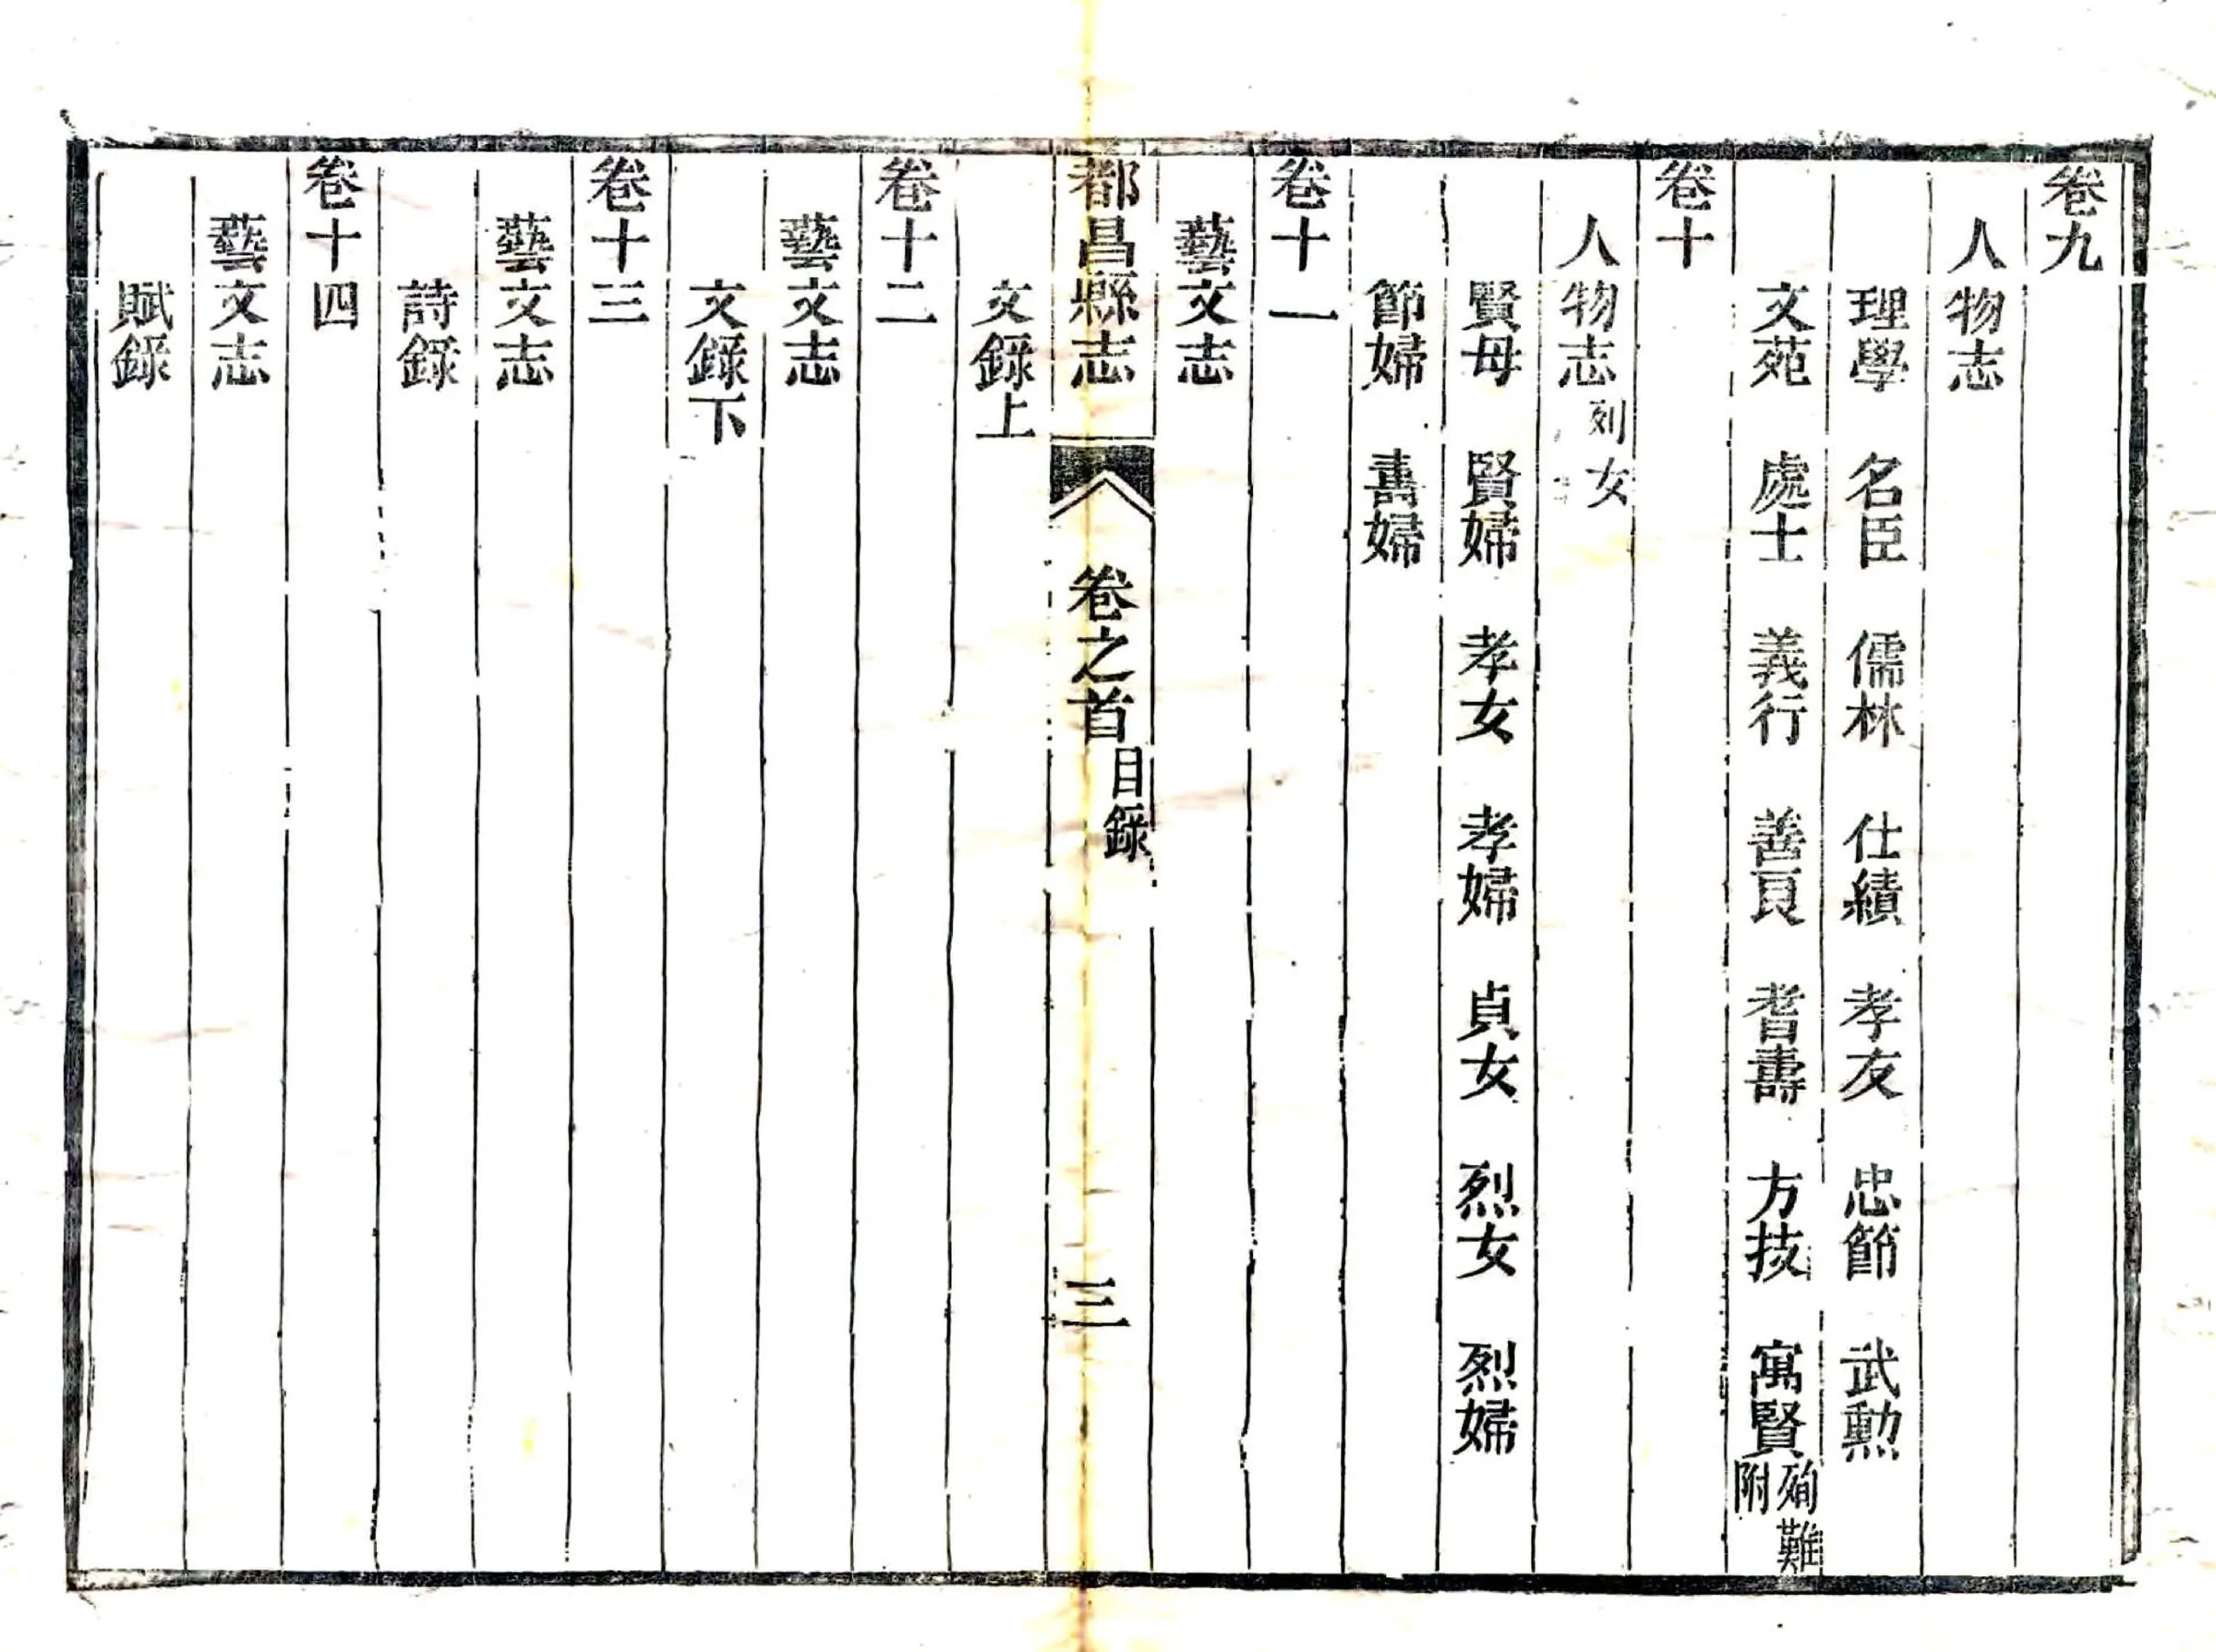 卷九
人物志
理學 名臣 儒林 仕績 孝友 忠節 武勲
文苑 處士 義行 善良 耆壽 方技 寓賢殉難附
卷十
人物志列女
賢母 賢婦 孝女 孝婦 貞女 烈女 烈婦
節婦 壽婦
卷十一
藝文志
都昌縣志 卷之首 目錄 三
文錄上
卷十二
藝文志
文錄下
卷十三
藝文志
詩錄
卷十四
藝文志
賦錄